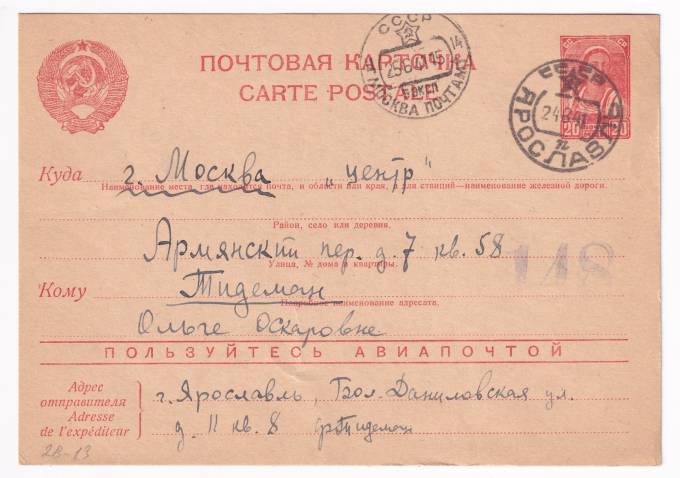 СССР
25641 15 14
МОСКВА ПОЧТАМТ
ПОЧТОВАЯ КАРТОЧКА
CARTE POSTALE
СССР
24641
ЯРОСЛАВЛЬ
20 20
Куда г. Москва „центр"
Наименование места, где находится почта, и области или края, а для станций—наименование железной дороги.
Район, село или деревня.
Армянский пер. д. 7 кв. 58
148
Улица, № дома и квартиры.
Кому Тидеман
Подробное наименование адресата.
Ольге Оскаровне
ПОЛЬЗУЙТЕСЬ АВИАПОЧТОЙ
Адрес
отправителя
Adresse
de l'expéditeur
г. Ярославль, Бол. Даниловская ул.
д. 11 кв. 8 Тидеман
28-13